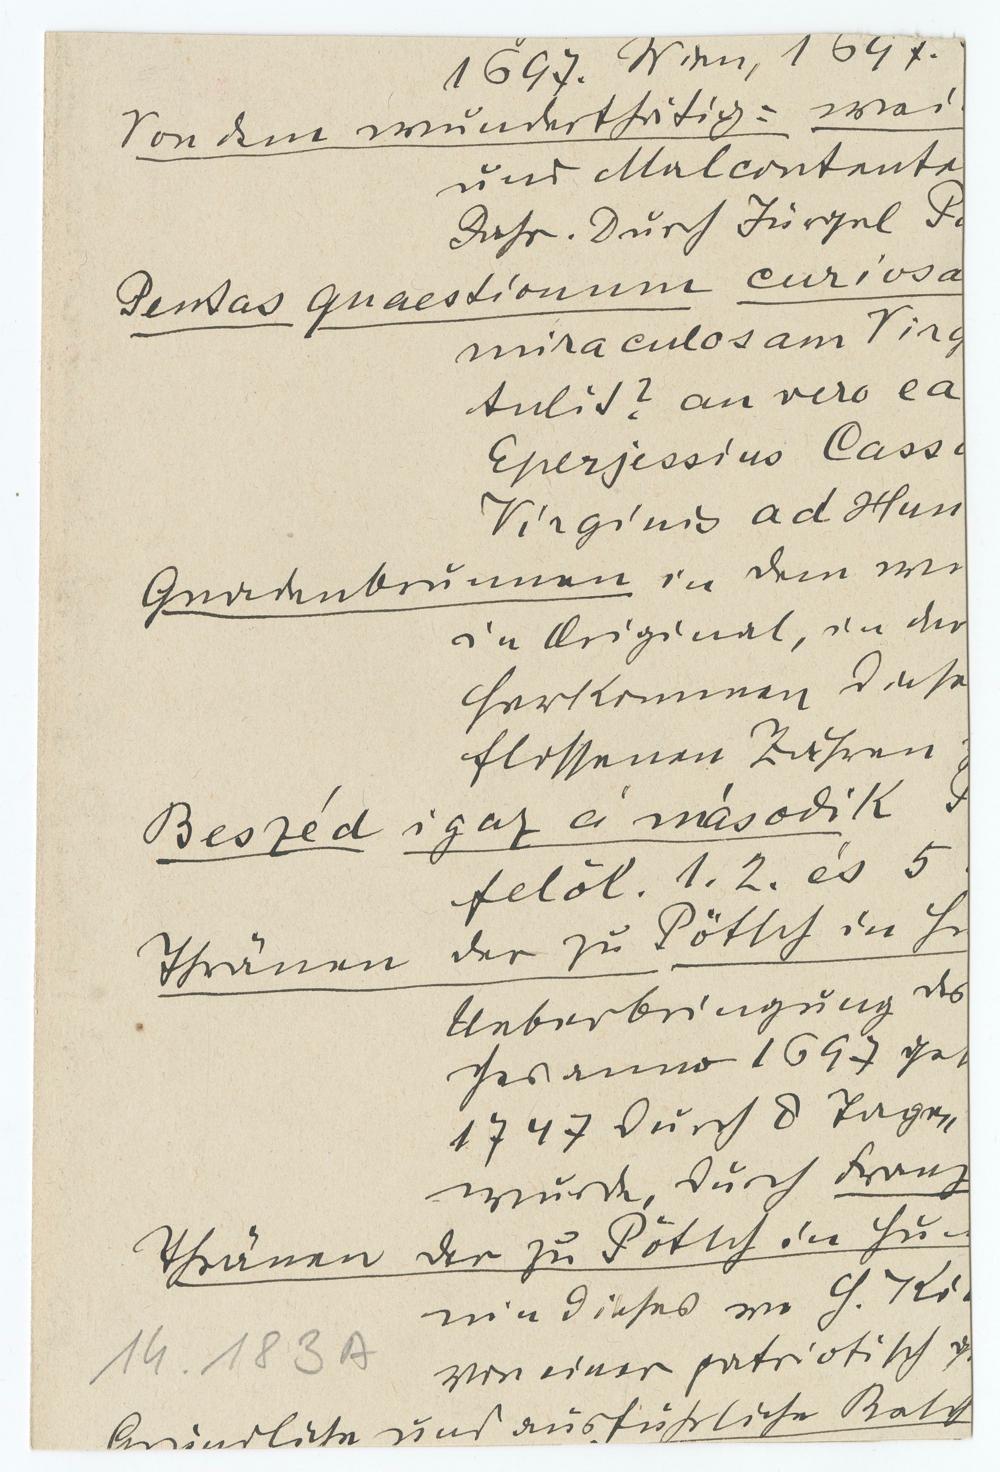 1697. Wien, 1697.
Von dem wunderthätig= wei
und Malcontente
Jahr. Durch Jürgel Pa
Pentas quaestionum curiosa
miraculosam Virg
tulit? an vero ea
Eperjessius Casso
Virginis ad Hun
Gnadenbrunnen in dem we
in Original, in der
herkommen diese
flossenen Zähren z
Beszéd igaz á második P
felöl. 1. 2. és 5
Thränen der zu Pötsch in Hu
Ueberbringung des
ches anno 1697 ges
1747 durch 8 Tage
wurde, durch Franz
Thränen der zu Pötsch in Hun
nin dieses
von einer patriotisch g
14.183 A
Gründliche und ausführliche